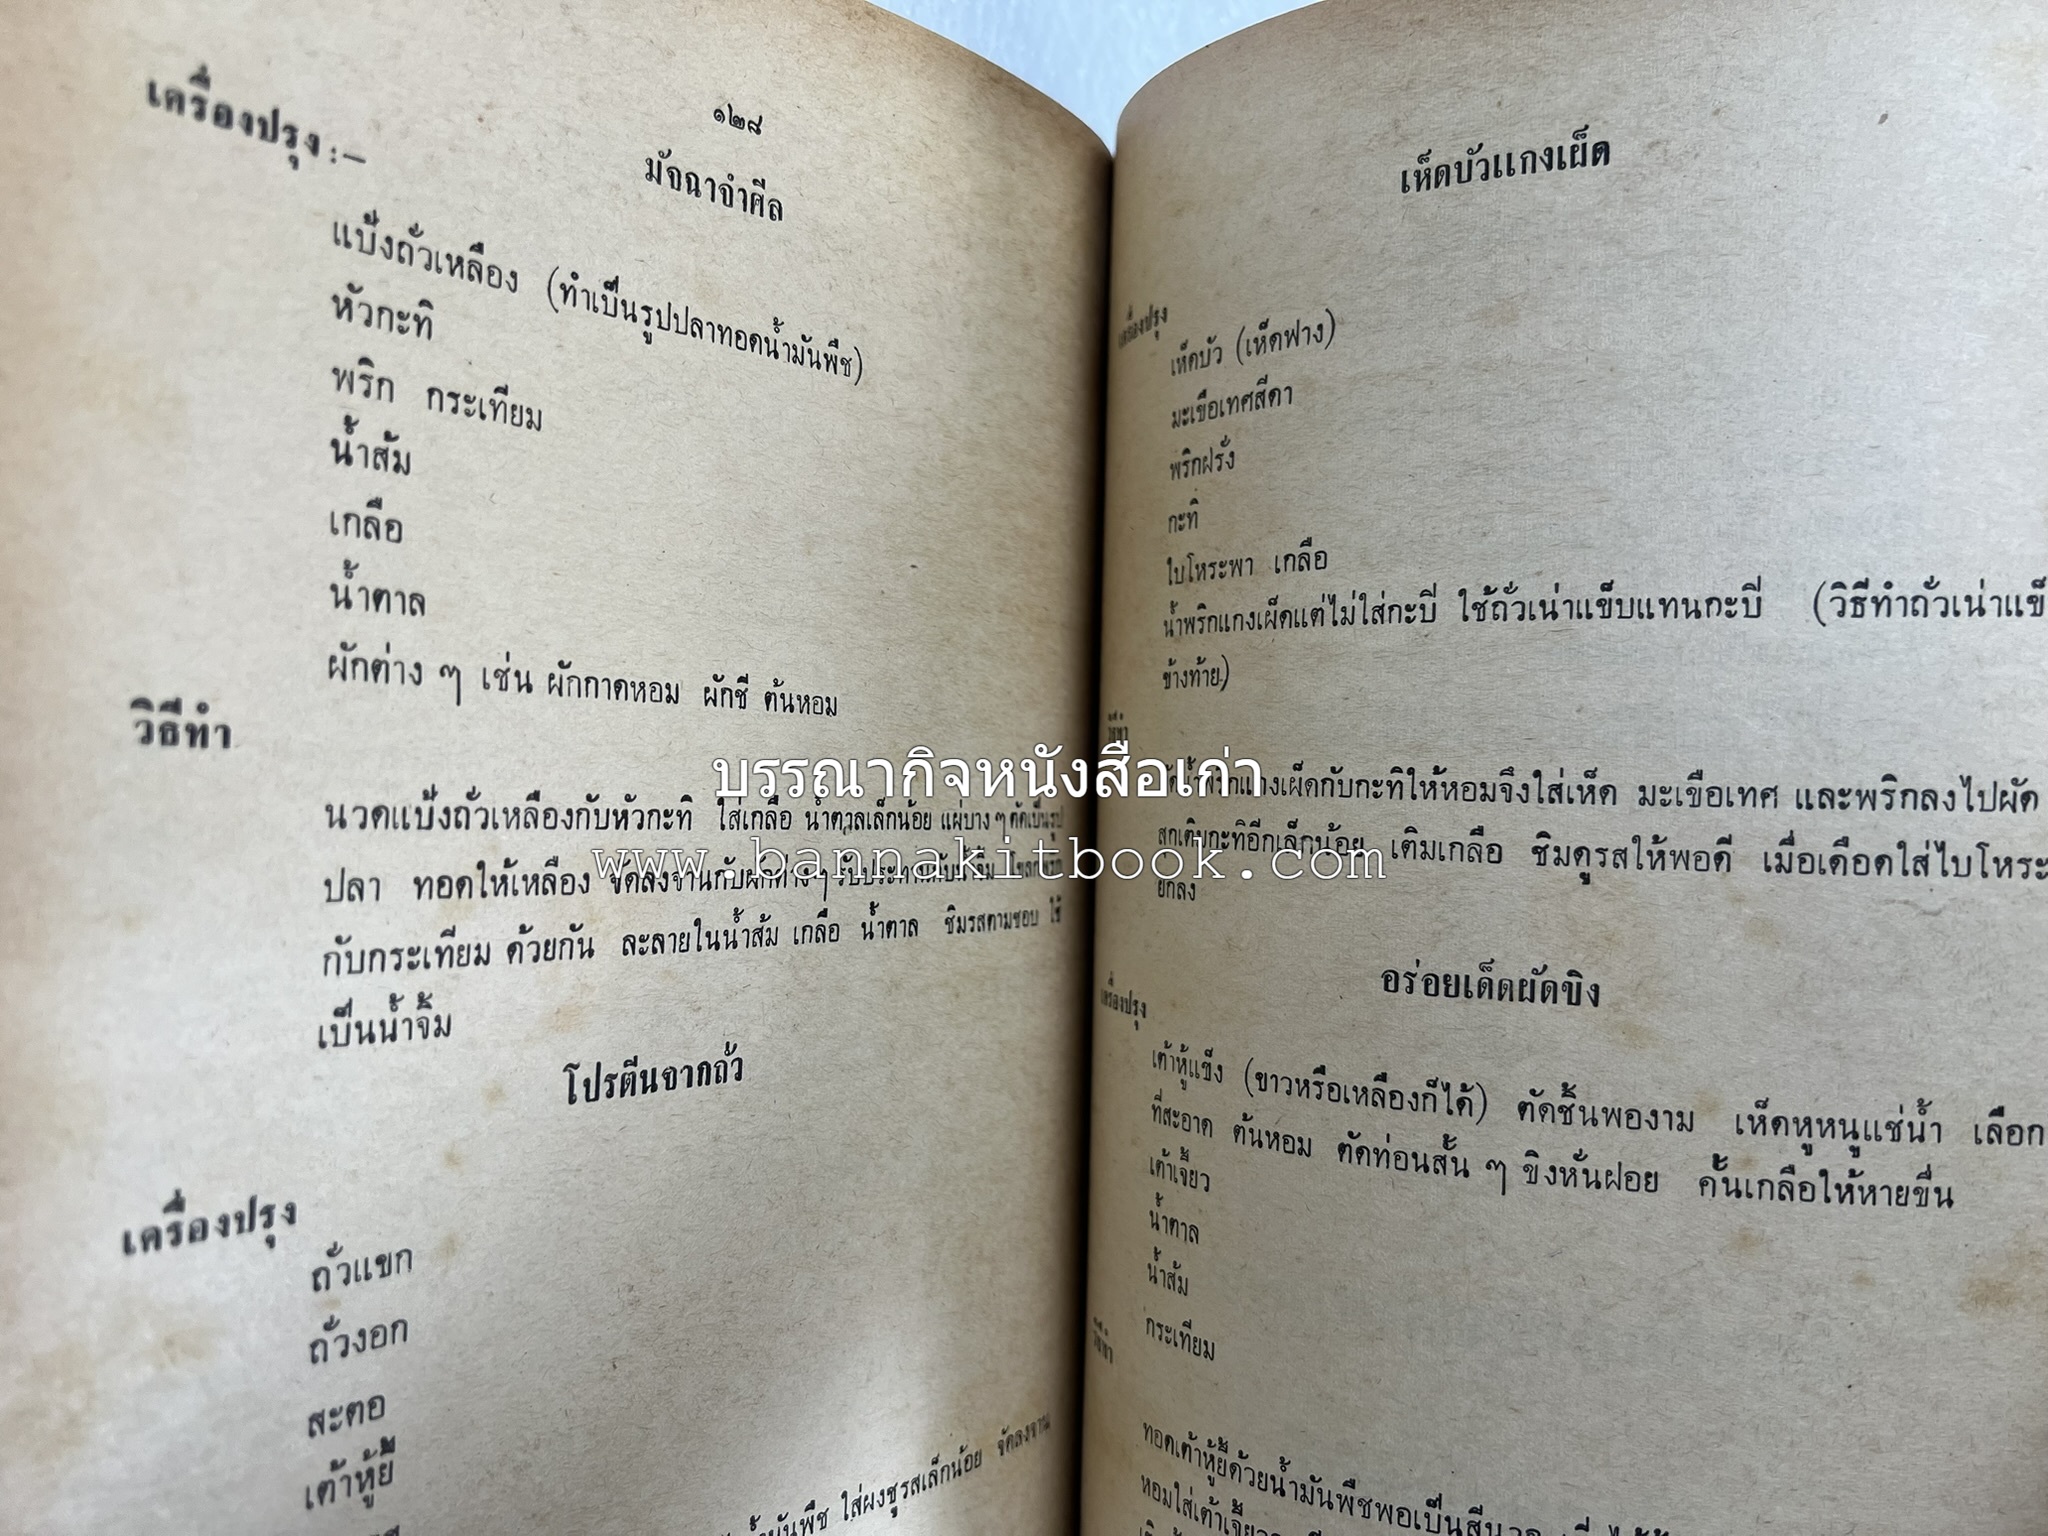 ๑๒๘
มัจฉาจำศีล
เครื่องปรุง :–
แป้งถั่วเหลือง (ทำเป็นรูปปลาทอดน้ำมันพืช)
หัวกะทิ
พริก กระเทียม
น้ำส้ม
เกลือ
น้ำตาล
ผักต่าง ๆ เช่น ผักกาดหอม ผักชี ต้นหอม
วิธีทำ
นวดแป้งถั่วเหลืองกับหัวกะทิ ใส่เกลือ น้ำตาลเล็กน้อย แผ่บาง ๆ ตัดเป็นรูป
ปลา ทอดให้เหลือง จัดลงจานกับผักต่างๆ รับประทานกับน้ำจิ้ม
กับกระเทียม ด้วยกัน ละลายในน้ำส้ม เกลือ น้ำตาล ชิมรสตามชอบ ใช้
เป็นน้ำจิ้ม
โปรตีนจากถั่ว
เครื่องปรุง
ถั่วแขก
ถั่วงอก
สะตอ
เต้าหู้ยี้
น้ำมันพืช ใส่ผงชูรสเล็กน้อย จัดลงจาน
เห็ดบัวแกงเผ็ด
เครื่องปรุง
เห็ดบัว (เห็ดฟาง)
มะเขือเทศสีดา
พริกฝรั่ง
กะทิ
ใบโหระพา เกลือ
น้ำพริกแกงเผ็ดแต่ไม่ใส่กะปี ใช้ถั่วเน่าแข็บแทนกะปี (วิธีทำถั่วเน่าแข็
ข้างท้าย)
วิธีทำ
น้ำพริกแกงเผ็ดกับกะทิให้หอมจึงใส่เห็ด มะเขือเทศ และพริกลงไปผัด
สุกเติมกะทิอีกเล็กน้อย เติมเกลือ ชิมดูรสให้พอดี เมื่อเดือดใส่ใบโหระ
ยกลง
อร่อยเด็ดผัดขิง
เครื่องปรุง
เต้าหู้แข็ง (ขาวหรือเหลืองก็ได้) ตัดชิ้นพองาม เห็ดหูหนูแช่น้ำ เลือก
ที่สะอาด ต้นหอม ตัดท่อนสั้น ๆ ขิงหั่นฝอย คั้นเกลือให้หายขื่น
เต้าเจี้ยว
น้ำตาล
น้ำส้ม
กระเทียม
วิธีทำ
ทอดเต้าหู้ยี้ด้วยน้ำมันพืชพอเป็นสีนวล
หอมใส่เต้าเจี้ยว
บรรณากิจหนังสือเก่า
www.bannakitbook.com